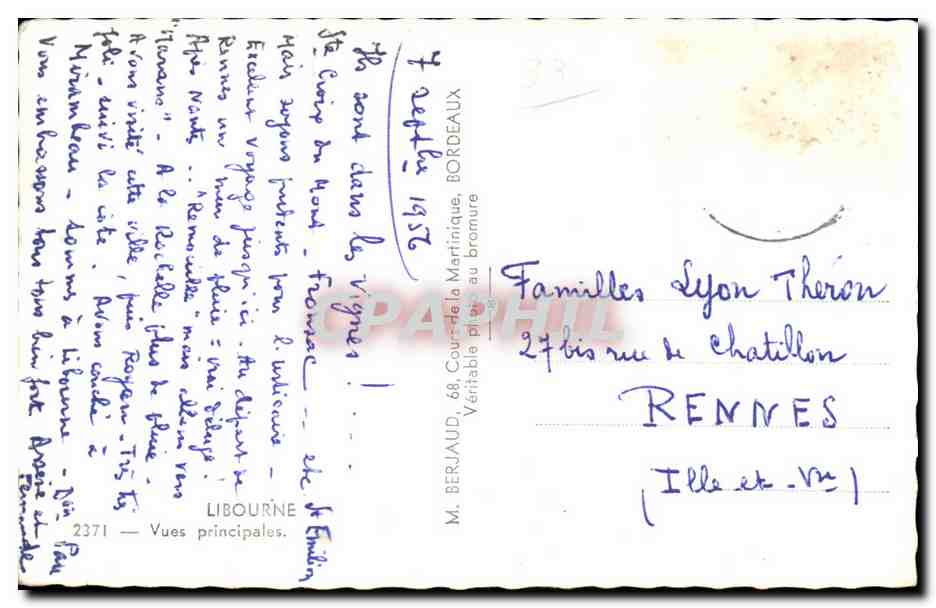 7 septbre 1956
Ils sont dans les vignes ! ...
Ste Croix du Mont - Fronsac -- etc St Emilion
Mais soyons prudents pour l'urticaire -
Excellent voyage jusqu'ici. Au départ de
Rennes un peu de pluie = vrai déluge !
Après Nantes .. "Remouillé" mais allons vers
"Marans" - A la Rochelle plus de pluie -
Avons visité cette ville, puis Royan - Très très
joli - suivi la côte. Avons couché à
Mirambeau - sommes à Libourne -
Vous embrassons tous tous bien fort Arsène et
Fernande
LIBOURNE
2371 — Vues principales.
M. BERJAUD, 68, Cours de la Martinique, BORDEAUX
Véritable photo au bromure
33
Familles Lyon Théron
27 bis rue de Chatillon
RENNES
(Ille-et-Vne)
CPAPHIL